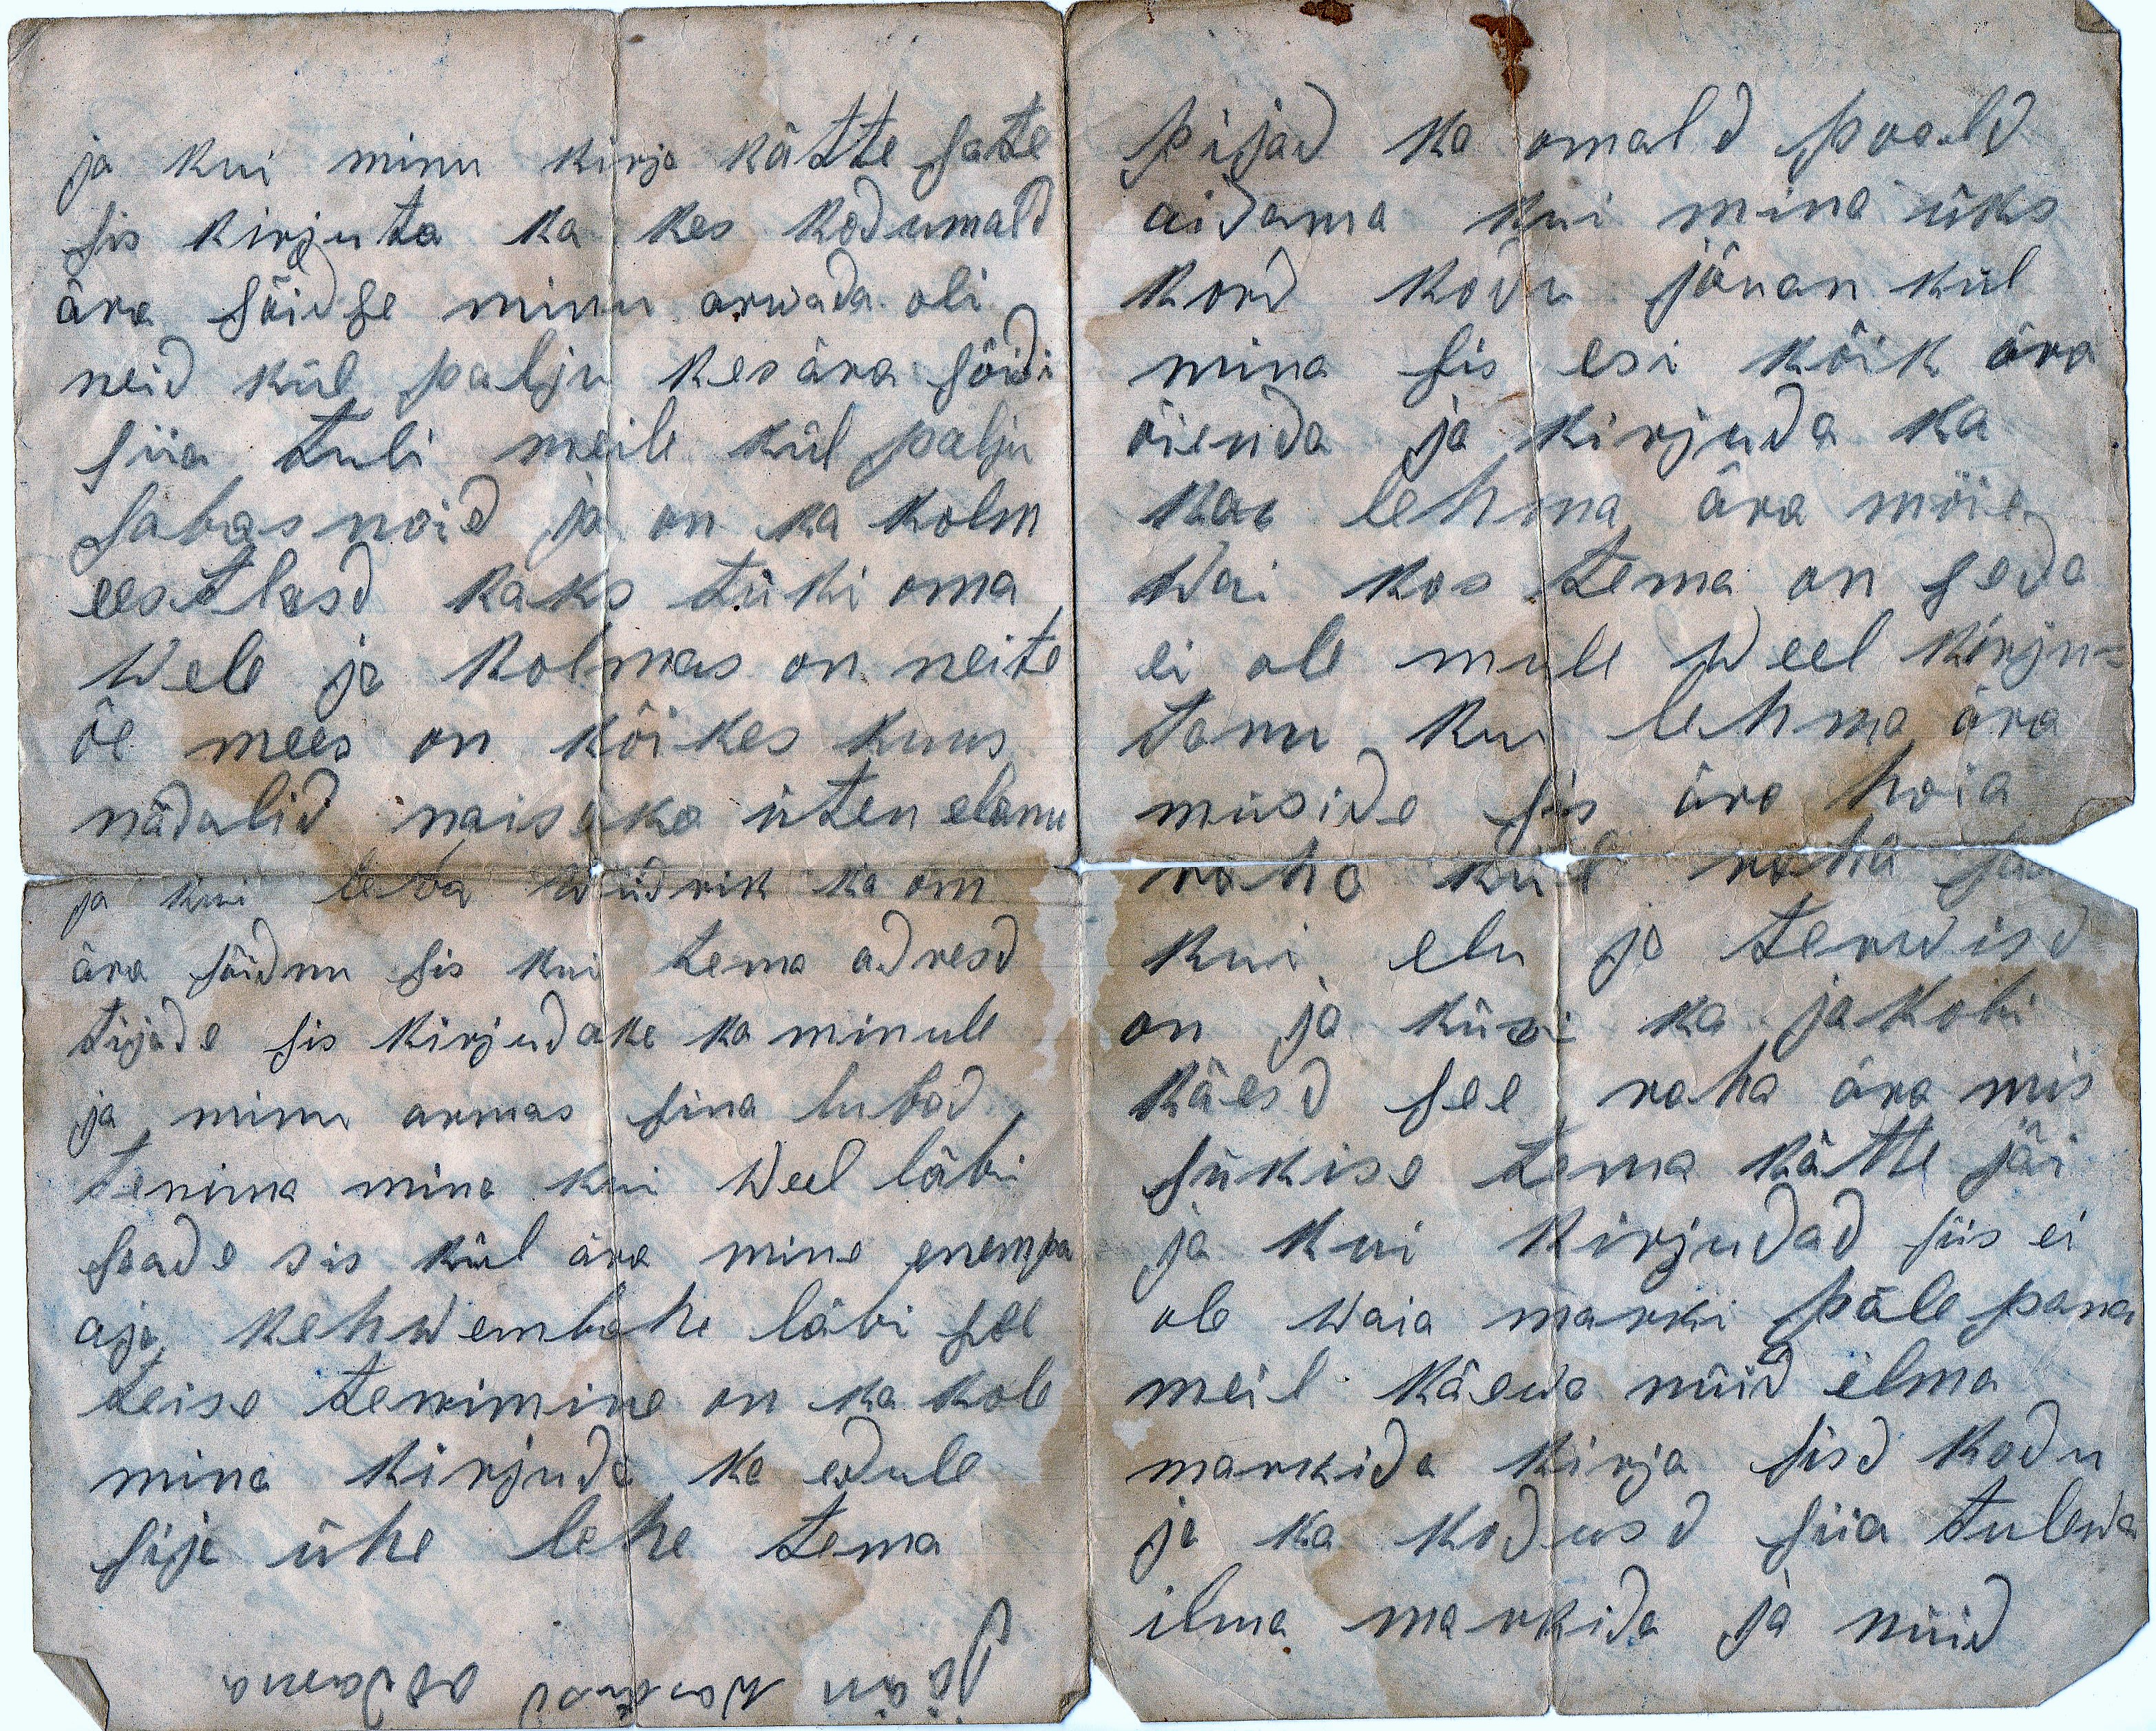 ja kui minu kirja kätte sate
sis kirjuta ka kes kodumald
ära sõidse minu arwada oli
neid kül palju kes ära sõidi
siia tuli meile kül palju
sabasnoid ja on ka kolm
eestlasd kaks tüki oma
wele ja kolmas on neite
õe mees on kõikes kuus
nädalid naisega üten elanu
ja kui leda widrik ka om
ära sõidnu sis kui tema adresd
tijade sis kirjudake ka minule
ja minu armas sina lubad
tenima mina kui weel läbi
saade sis kül ära mine enempa
aja kehwembahe läbi see
teise tenimine on ka kole
mina kirjuda ka edule
sije ühe lehe tema
Jään wastusd otdama
pijad ka omald poold
aidama kui mina üks
kord kodu jõuan kül
mina sis esi kõik ära
õienda ja kirjuda ka
kas lehma ära mõie
wai kos tema on seda
ei ole mule weel kirju-
tanu kui lehma ära
müside sis ära hoia
raha kül raha
kui elu ja terwisd
on ja küsi ka jakobi
käesd see raha ära mis
sükise tema kätte jäi
ja kui kirjudad siis ei
ole waia marki päle pana
meil käewa nüid ilma
markida kirja sisd kodu
ja ka kodusd siia tulewa
ilma markida ja nüid